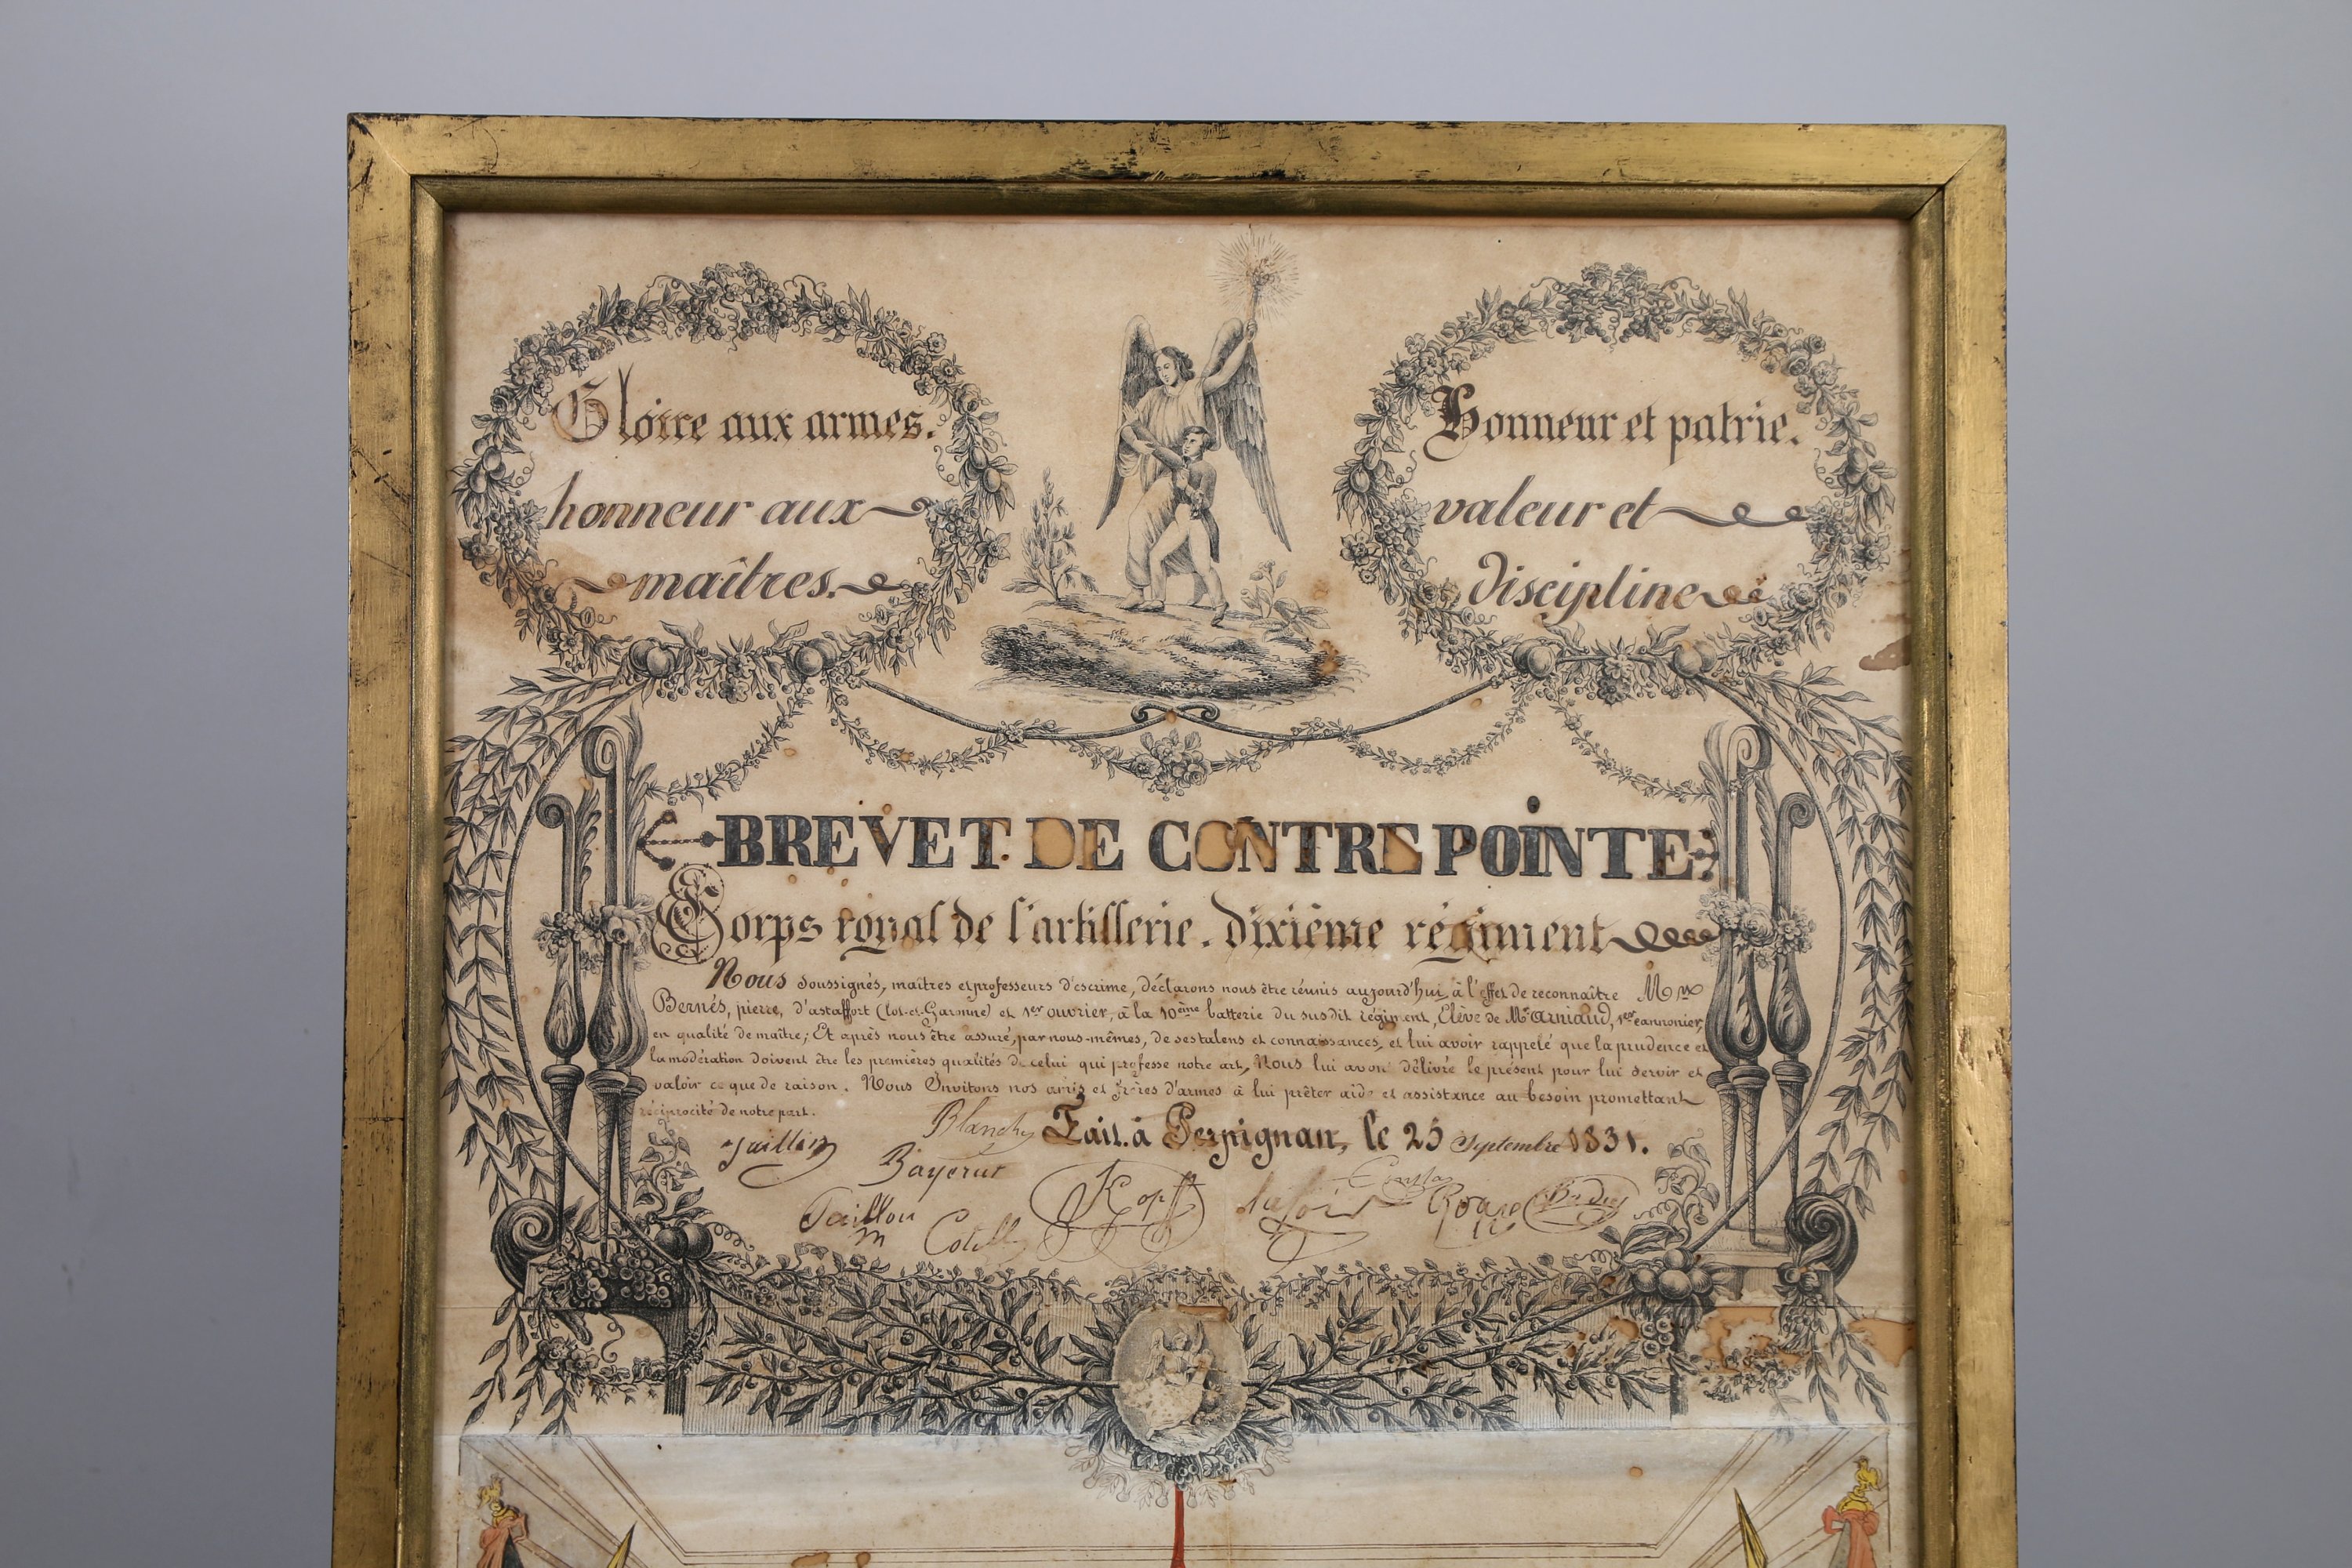 Gloire aux armes.
honneur aux
maîtres.
Honneur et patrie.
valeur et
discipline
BREVET. DE CONTRE POINTE
Corps royal de l'artillerie. dixième régiment
Nous soussignés, maîtres et professeurs d'escrime, déclarons nous être réunis aujourd'hui, à l'effet de reconnaître Mr
Bernés, pierre, d'astaffort (Lot-et-Garonne) et 1er ouvrier, à la 10ème batterie du susdit régiment, Élève de Mr Arniaud, 1er cannonier,
en qualité de maître; Et après nous être assuré, par nous-mêmes, de ses talens et connaissances, et lui avoir rappelé que la prudence et
la modération doivent être les premières qualités de celui qui professe notre art, Nous lui avon délivré le présent pour lui servir et
valoir ce que de raison. Nous Invitons nos amis et frères d'armes à lui prêter aide et assistance au besoin promettant
réciprocité de notre part.
Fait à Perpignan, le 25 Septembre 1831.
Blanchy
Jaillin
Bayerut
Taillou
Kopff